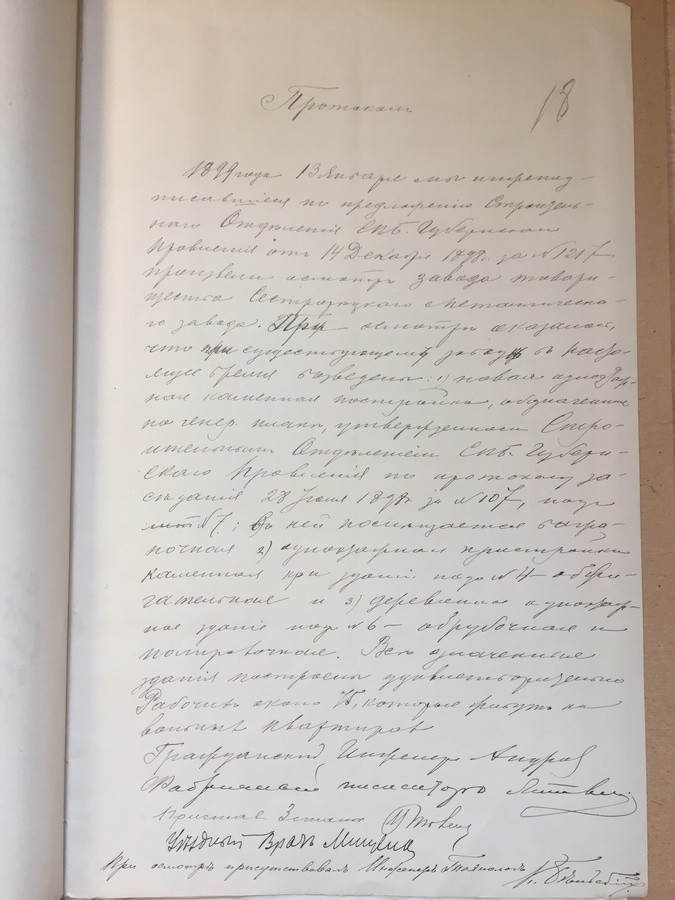 18
Протоколъ
1899 года 13 Января мы нижепод-
писавшіеся по предложенію Строитель-
наго Отдѣленія СПБ. Губернскаго
Правленія отъ 14 Декабря 1898 г. за № 1217
произвели осмотръ завода товари-
щества Сестрорѣцкаго
го завода. При осмотрѣ оказалось,
что при существующемъ заводѣ въ насто-
ящее время возведены: 1) новая одноэтаж-
ная каменная постройка, обозначенная
на генер. планѣ, утвержденномъ Стро-
ительнымъ Отдѣленіемъ СПБ. Губерн-
скаго Правленія по протоколу за-
сѣданія 28 1898 г. за № 107, подъ
лит № 7; въ ней помѣщается
2) одноэтажная пристройка
каменная при зданіи подъ № 4 –
и 3) деревянное одноэтаж-
ное зданіе подъ № 6 – обрубочная и
полировочная. Всѣ означенныя
зданія построены удовлетворительно
Рабочихъ около 75, которые живутъ на
вольныхъ квартирахъ
Гражданскій Инженеръ
Фабричный
Приставъ 3 стана
Уѣздный Врачъ
При осмотрѣ присутствовалъ Инженеръ Технологъ